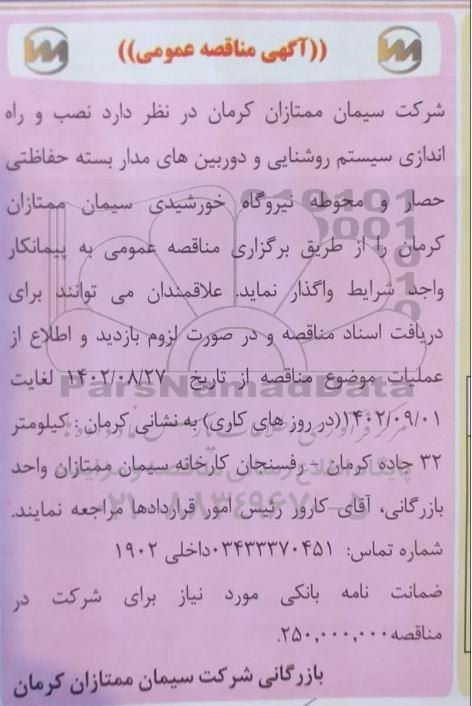 ((آگهی مناقصه عمومی))
شرکت سیمان ممتازان کرمان در نظر دارد نصب و راه
اندازی سیستم روشنایی و دوربین های مدار بسته حفاظتی
حصار و محوطه نیروگاه خورشیدی سیمان ممتازان
کرمان را از طریق برگزاری مناقصه عمومی به پیمانکار
واجد شرایط واگذار نماید. علاقمندان می توانند برای
دریافت اسناد مناقصه و در صورت لزوم بازدید و اطلاع از
عملیات موضوع مناقصه از تاریخ ۱۴۰۲/۰۸/۲۷ لغایت
ParsNamadData
۱۴۰۲/۰۹/۰۱(در روز های کاری) به نشانی کرمان : کیلومتر
۳۲ جاده کرمان - رفسنجان کارخانه سیمان ممتازان واحد
بازرگانی، آقای کارور رئیس امور قراردادها مراجعه نمایند.
۰۲۱-۸۸۳۴۹۶۷۰-۵
شماره تماس: ۰۳۴۳۳۳۷۰۴۵۱داخلی ۱۹۰۲
ضمانت نامه بانکی مورد نیاز برای شرکت در
مناقصه۲۵۰,۰۰۰,۰۰۰.
بازرگانی شرکت سیمان ممتازان کرمان